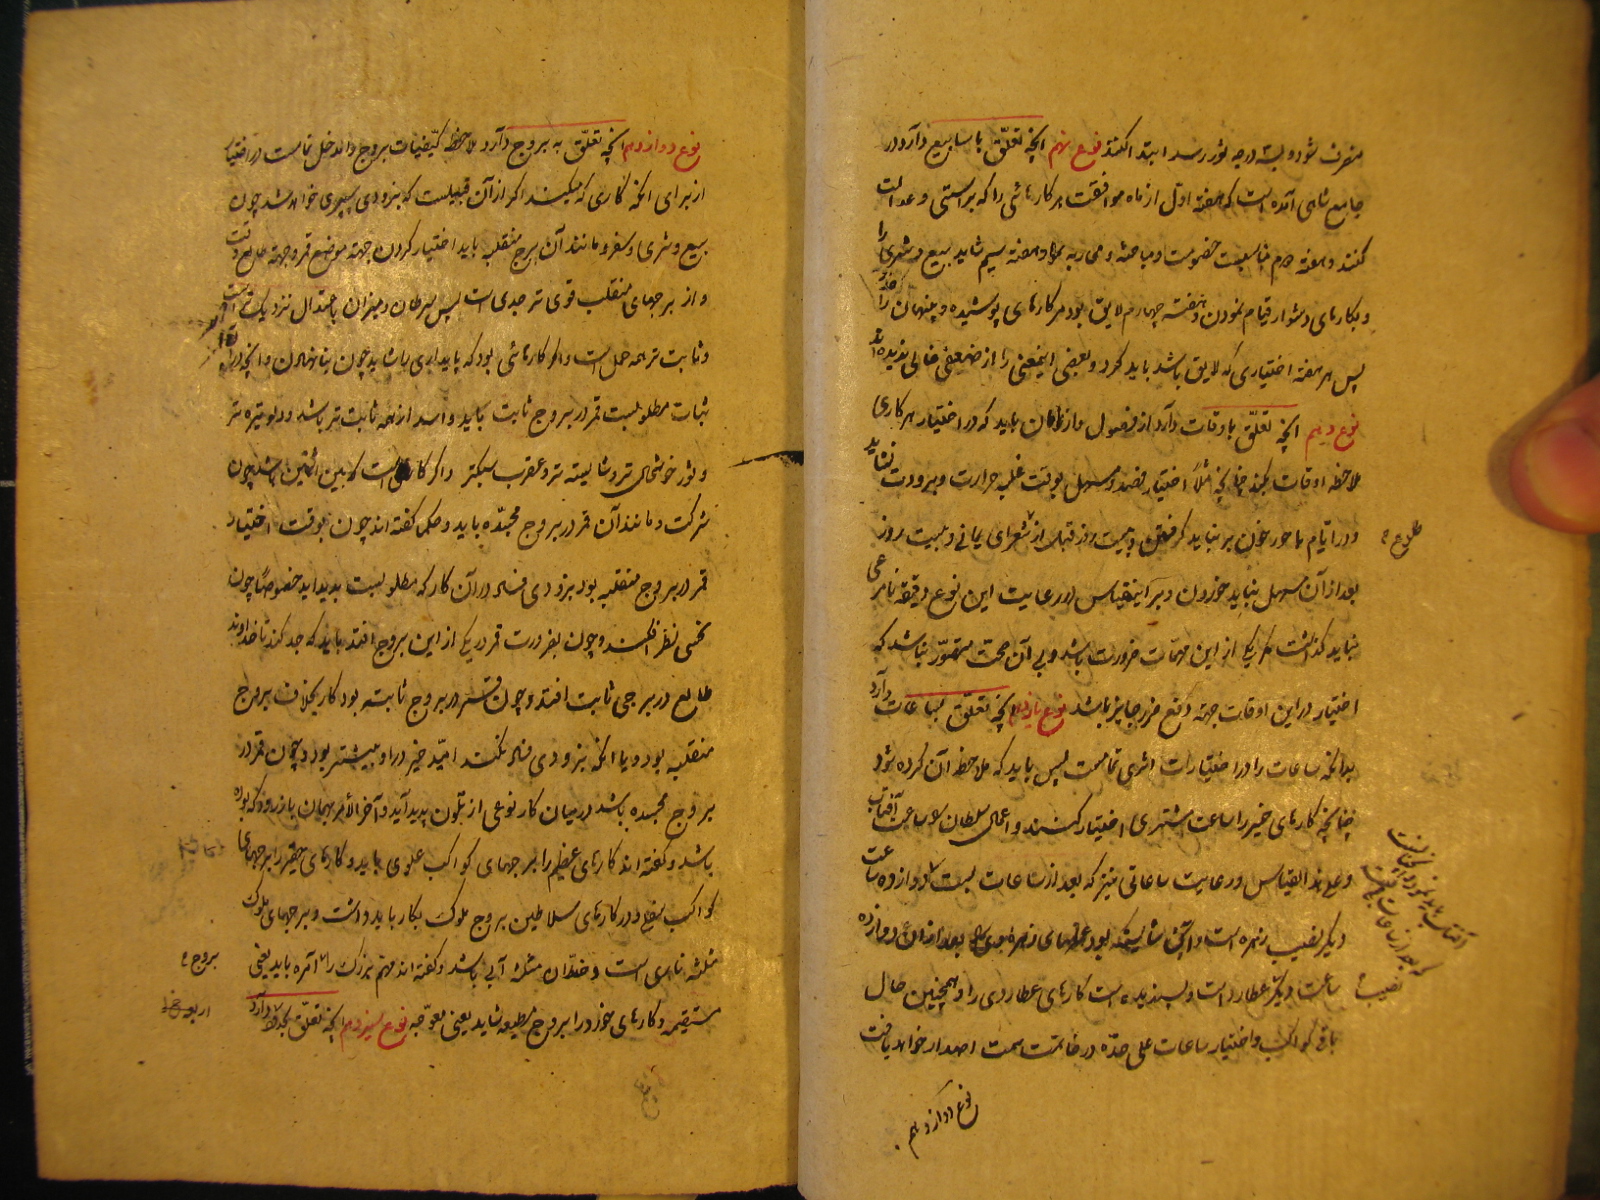 منصرف شود و بشه درجه ثور رسد ابتدا کنند نوع نهم آنچه تعلّق با سابیع دارد در
جامع شاهی آمده است که هفته اول از ماه موافقت هر کارهائی را که براستی و عدالت
کنند و هفته دوم مناسبت خصومت و مباحثه و محاربه بود و هفته سیم شاید بیع و شری را
و بکارهای دشوار قیام نمودن و هفته چهارم لایق بود مر کارهای پوشیده و پنهان را
پس هر هفته اختیاری که لایق باشد باید کرد و بعضی اینمعنی را از ضعفی خالی ندیده‌اند
نوع دهم آنچه تعلّق باوقات دارد از فصول و ازمان باید که در اختیار هر کاری
ملاحظه اوقات بکند چنانچه مثلاً اختیار فصد و مسهل بوقت غلبه حرارت و برودت نشاید
و در ایام باحور خون بر نباید گرفتن و بیست روز قبل از شعرای یمانی و بیست روز
طلوع
بعد از آن مسهل نباید خوردن و برینقیاس در رعایت این نوع دقیقه نامرعی
نباید گذاشت مگر یکی از این مهمّات ضرورت باشد و بی آن صحت متصوّر نباشد که
اختیار در این اوقات جهته دفع ضرر جایز باشد نوع یازدهم آنچه تعلّق بساعات دارد
بدانکه ساعات را در اختیارات اثری تمامست پس باید که ملاحظه آن کرده شود
چنانچه کارهای خیر را ساعت مشتری اختیار کنند و اعمال سلطان را ساعت آفتاب
و علی هذا القیاس و رعایت ساعاتی نیز که بعد از ساعات بست دوازده ساعت
دیگر نصیب زهره است و در آن شایسته بود عملهای زهروی را و بعد از آن دوازده
نصیب
ساعت دیگر عطارد است و پسندیده است کارهای عطاردی را و همچنین حال
باقی کواکب و اختیار ساعات علی حدّه در خاتمت سمت اصدار خواهد یافت
نوع دوازدهم
نوع دوازدهم آنچه تعلّق به بروج دارد ملاحظه کیفیّات بروج را مدخل تمامست در اختیار
از برای آنکه کاری که میکنند اگر از آن قبیلست که بزودی سپری خواهد شد چون
بیع و شری و سفر و مانند آن برج منقلب باید اختیار کردن جهته موضع قمر و جهته طالع وقت
و از برجهای منقلب قوی تر جدی است پس سرطان و میزان باعتدال نزدیک تر است
و ثابت تر همه حمل است و اگر کارهائی بود که پایداری را شاید چون بنا نهادن و آنچه در او
ثبات مطلوبست قمر در بروج ثابت باید و اسد از همه ثابت تر باشد و دلو تیره تر
و ثور خوشحال تر و شایسته تر و عقرب سبکتر و اگر کاری است که بین اثنین باشد چون
شرکت و مانند آن قمر در بروج مجسّده باید و حکما گفته اند چون بوقت اختیار
قمر در بروج منقلبه بود بزودی فساد در آن کار که مطلوبست پدید آید خصوصاً چون
نحسی نظر افکند و چون بضرورت قمر در یکی از این بروج افتد باید که جهد کند تا خداوند
طالع در برجی ثابت افتد و چون قمر در بروج ثابت بود کار بخلاف بروج
منقلبه بود و یا آنکه بزودی فساد نکند امید خیر در او بیشتر بود و چون قمر در
بروج مجسده باشد در میان کار نوعی از تلّون پدید آید و آخر الأمر بهمان باز رود که بوده
باشد و گفته اند کارهای عظیم را برجهای کواکب علوی باید و کارهای حقیر را برجهای
کواکب سفلی و در کارهای سلاطین بروج ملوک بکار باید داشت و برجهای ملوک
مثلثه ناری است و ضدّ آن مثلثه آبی باشد و گفته اند مهم بزرگ را آمره باید یعنی
بروج
مستقیمه و کارهای خورد را بروج مطیعه شاید یعنی معوّجه نوع سیزدهم آنچه تعلّق بحدّ دارد